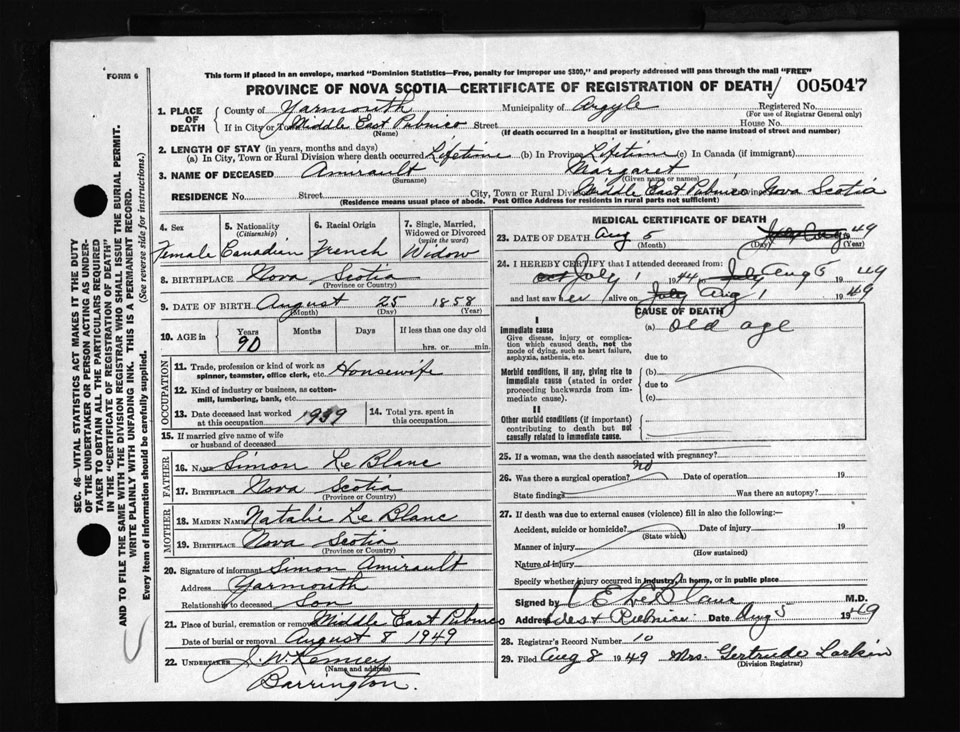 FORM 6
This form if placed in an envelope, marked "Dominion Statistics—Free, penalty for improper use $300," and properly addressed will pass through the mail "FREE"
PROVINCE OF NOVA SCOTIA—CERTIFICATE OF REGISTRATION OF DEATH 005047
SEC. 46—VITAL STATISTICS ACT MAKES IT THE DUTY
OF THE UNDERTAKER OR PERSON ACTING AS UNDER-
TAKER TO OBTAIN ALL THE PARTICULARS REQUIRED
IN THE "CERTIFICATE OF REGISTRATION OF DEATH"
AND TO FILE THE SAME WITH THE DIVISION REGISTRAR WHO SHALL ISSUE THE BURIAL PERMIT.
WRITE PLAINLY WITH UNFADING INK. THIS IS A PERMANENT RECORD.
Every item of information should be carefully supplied. (See reverse side for instructions.)
1. PLACE OF DEATH
County of Yarmouth Municipality of Argyle Registered No.
(For use of Registrar General only)
If in City or Town Middle East Pubnico Street House No.
(Name) (If death occurred in a hospital or institution, give the name instead of street and number)
2. LENGTH OF STAY (in years, months and days)
(a) In City, Town or Rural Division where death occurred Lifetime (b) In Province Lifetime (c) In Canada (if immigrant)
3. NAME OF DECEASED Amirault Margaret
(Surname) (Given name or names)
RESIDENCE No. Street City, Town or Rural Div Middle East Pubnico Nova Scotia
(Residence means usual place of abode. Post Office Address for residents in rural parts not sufficient)
4. Sex 5. Nationality (Citizenship) 6. Racial Origin 7. Single, Married, Widowed or Divorced (write the word)
Female Canadian French Widow
8. BIRTHPLACE Nova Scotia
(Province or Country)
9. DATE OF BIRTH August 25 1858
(Month) (Day) (Year)
10. AGE in Years Months Days If less than one day old
90 hrs. or min.
OCCUPATION
11. Trade, profession or kind of work as spinner, teamster, office clerk, etc. Housewife
12. Kind of industry or business, as cotton-mill, lumbering, bank, etc.
13. Date deceased last worked at this occupation 1939 14. Total yrs. spent in this occupation
15. If married give name of wife or husband of deceased
FATHER
16. NAME Simon Le Blanc
17. BIRTHPLACE Nova Scotia
(Province or Country)
MOTHER
18. MAIDEN NAME Natalie Le Blanc
19. BIRTHPLACE Nova Scotia
(Province or Country)
20. Signature of informant Simon Amirault
Address Yarmouth
Relationship to deceased Son
21. Place of burial, cremation or removal Middle East Pubnico
Date of burial or removal August 8 1949
22. UNDERTAKER J. W. Kenney
(Name and address)
Barrington.
MEDICAL CERTIFICATE OF DEATH
23. DATE OF DEATH Aug 5 1949
(Month) (Day) (Year)
24. I HEREBY CERTIFY that I attended deceased from:
July 1 1944 July Aug 5 1949
and last saw her alive on July Aug 1 1949
CAUSE OF DEATH
I
Immediate cause (a) old age
Give disease, injury or complica-
tion which caused death, not the
mode of dying, such as heart failure,
asphyxia, asthenia, etc. due to
Morbid conditions, if any, giving rise to (b)
immediate cause (stated in order due to
proceeding backwards from im-
mediate cause). (c)
II
Other morbid conditions (if important)
contributing to death but not
causally related to immediate cause.
25. If a woman, was the death associated with pregnancy?
26. Was there a surgical operation? no Date of operation 19
State findings Was there an autopsy?
27. If death was due to external causes (violence) fill in also the following:—
Accident, suicide or homicide? Date of injury 19
(State which)
Manner of injury
(How sustained)
Nature of injury
Specify whether injury occurred in industry, in home, or in public place
Signed by E LeBlanc M.D.
Address West Pubnico Date Aug 5 1949
28. Registrar's Record Number 10
29. Filed Aug 8 1949 Mrs. Gertrude Larkin
(Division Registrar)